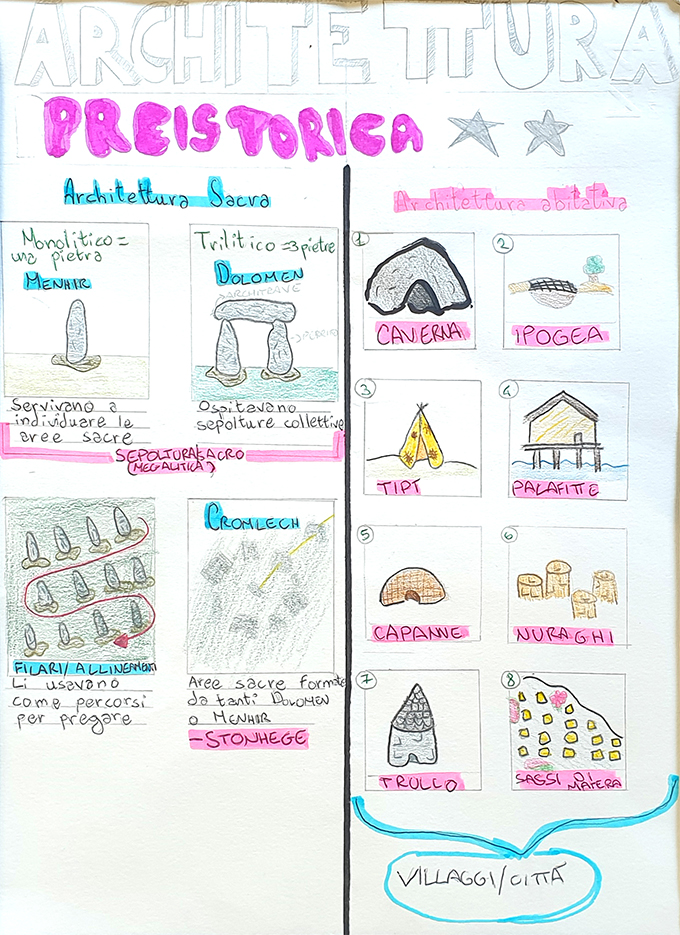 ARCHITETTURA
PREISTORICA
Architettura Sacra
Monolitico=
una pietra
MENHIR
Servivano a
individuare le
aree sacre
Trilitico=3 pietre
DOLOMEN
>ARCHITRAVE
Ospitavano
sepolture collettive
SEPOLTURA/SACRO
(MEGALITICA)
FILARI/ALLINEAMENTI
Li usavano
come percorsi
per pregare
CROMLECH
Aree sacre formate
da tanti DOLOMEN
o MENHIR
-STONHEGE
Architettura abitativa
1
CAVERNA
2
IPOGEA
3
TIPI
4
PALAFITTE
5
CAPANNE
6
NURAGHI
7
TRULLO
8
SASSI DI
MATERA
VILLAGGI/CITTÀ